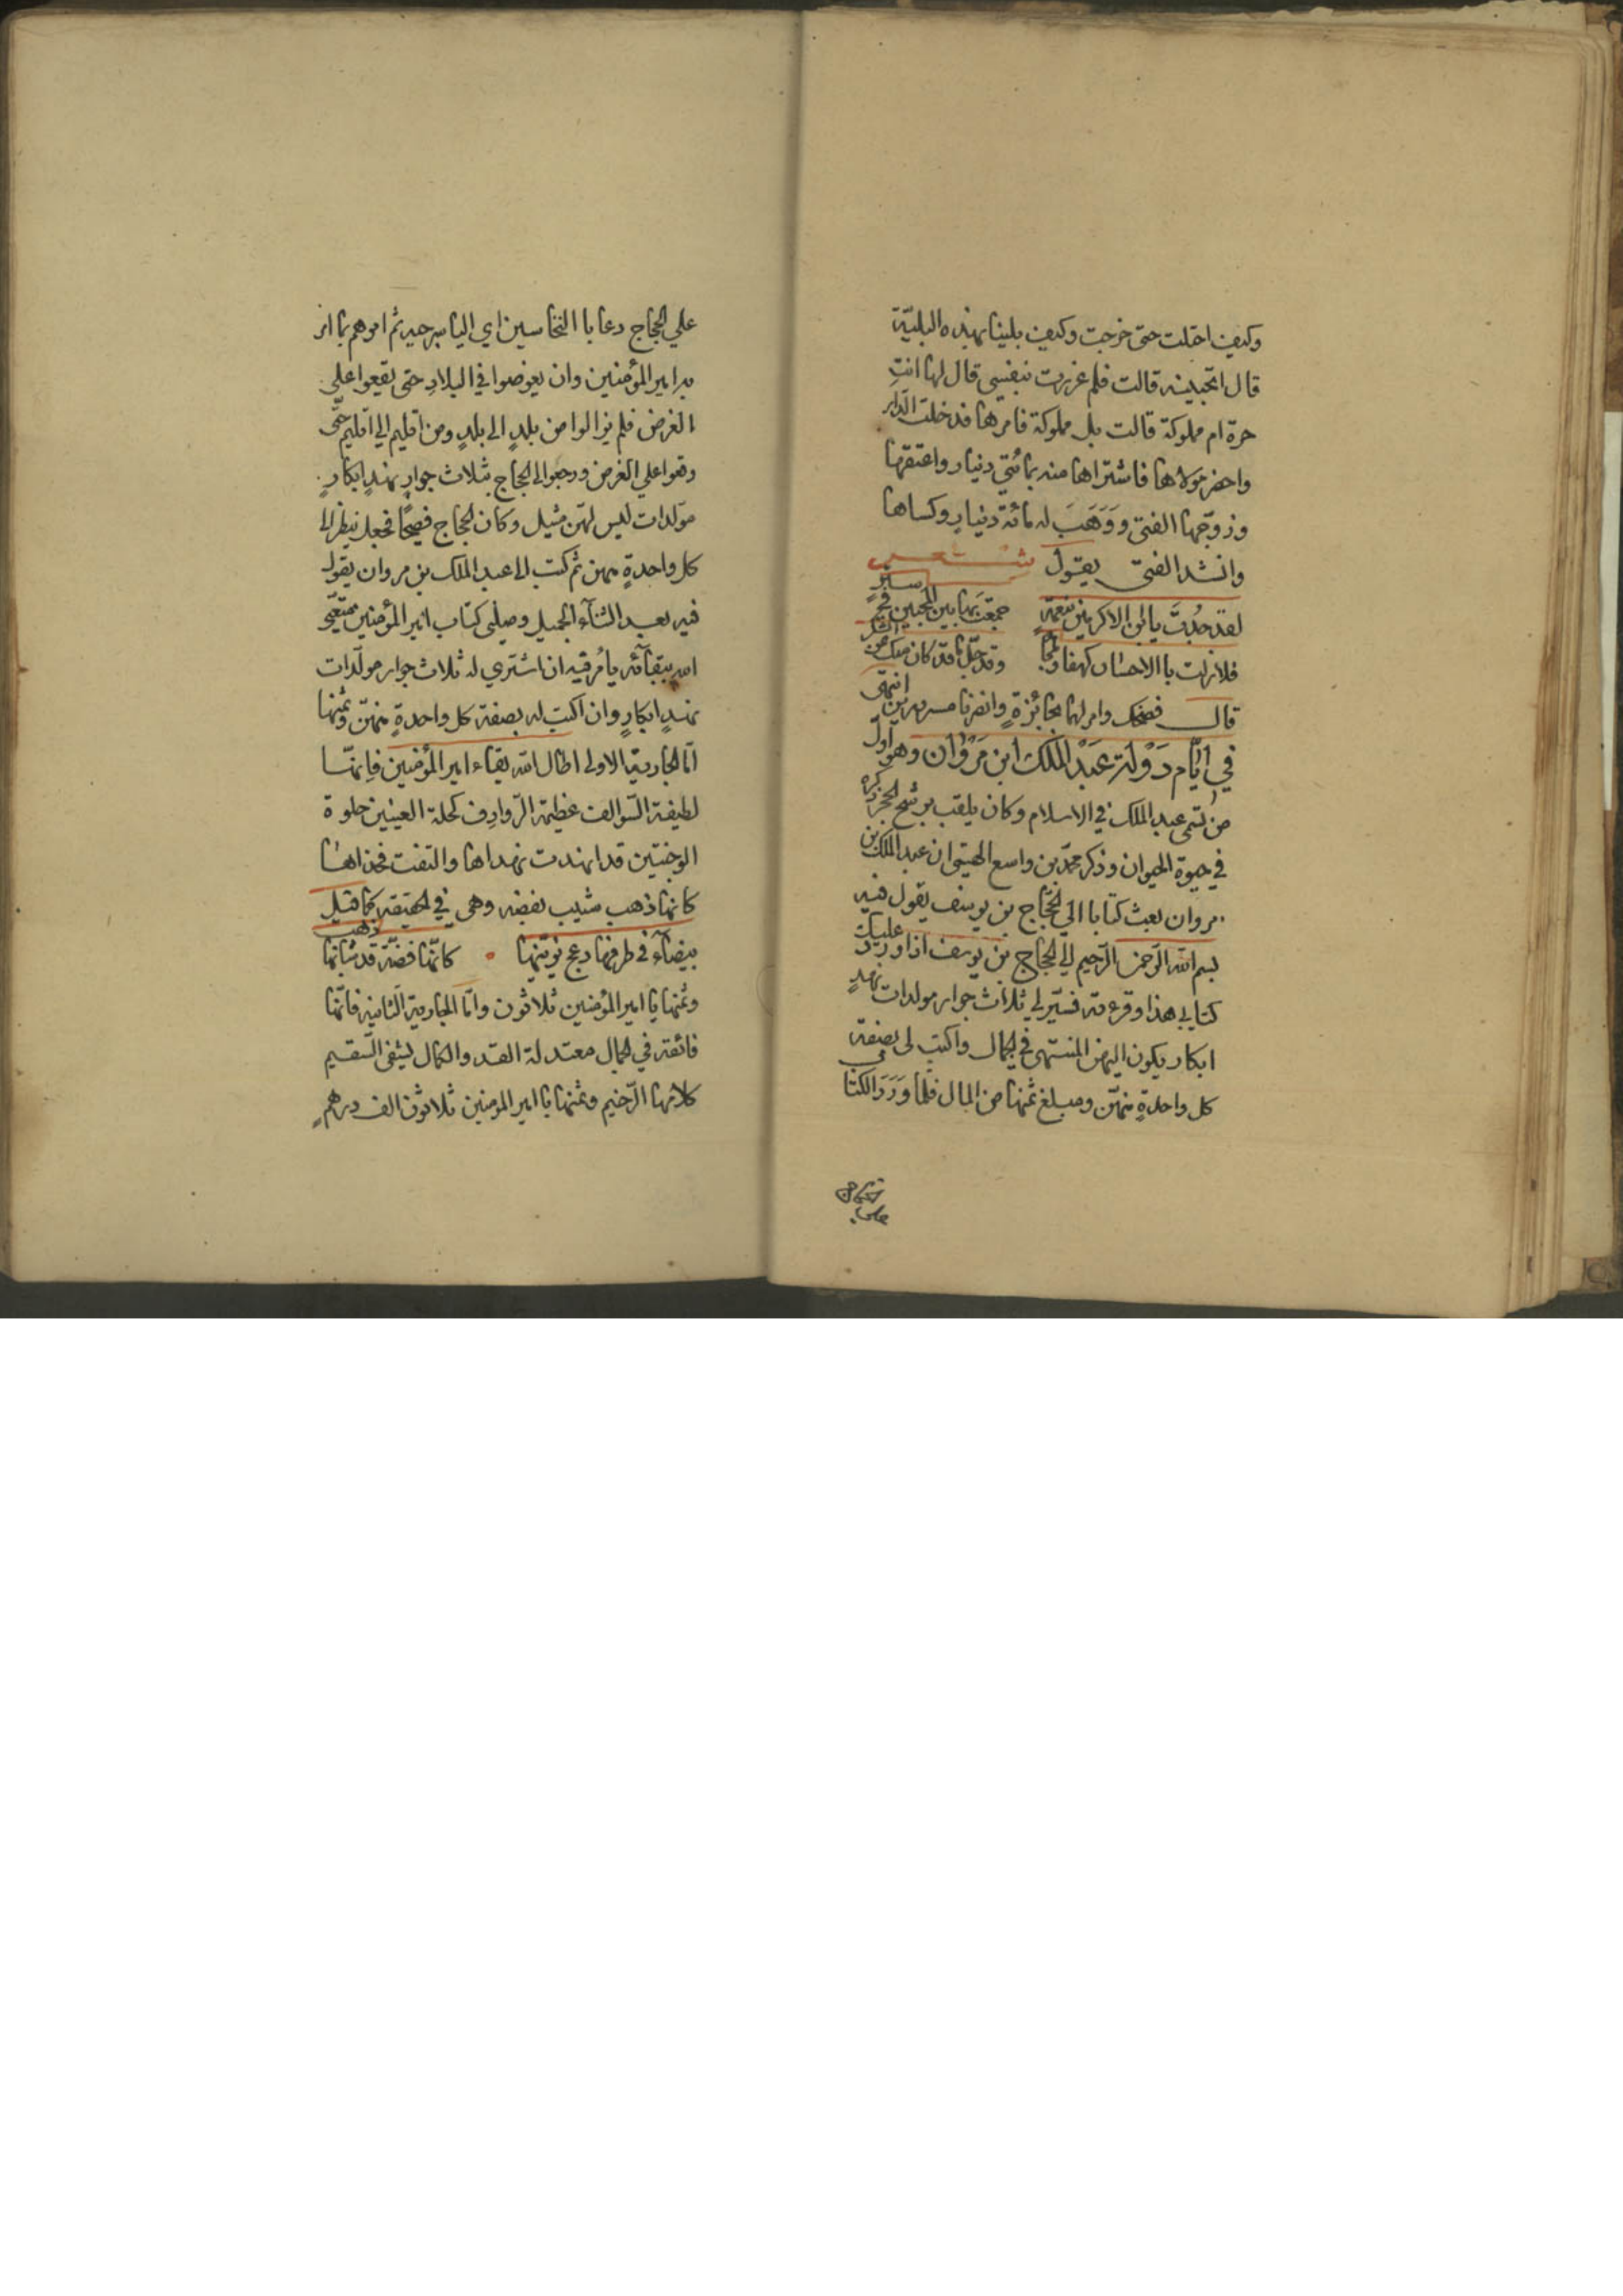 وكيف احتلت حتى خرجت وكيف بلينا بهذه البلية
قال اتحبينه قالت فلم غررت بنفسي قال لها انتِ
حرة ام مملوكة قالت بل مملوكة فامرها فدخلت الدار
واحضر مولاها فاشتراها منه بمائتي دينار واعتقها
وزوّجها الفتى وَوَهَبَ له مائة دينارٍ وكساها
وانشد الفتى يقول شعر
لقد جُدتَ يا ابن الاكرمين بنعمةٍ جمعت بها بين المحبين في ستر
فلا زلت باالاحسان كهفا وملجا وقد جلّ ما قد كان منك من الشكر
قال فضحك وامر لهما بجائزةٍ وانصرفا مسرورين انتهى
في ايّام دَوْلة عَبْد الملك ابن مَرْوان وهو اول
من تسمى عبد الملك في الاسلام وكان يلقب برشح الحجر ذكره
في حيوة الحيوان وذكر محمّد بن واسع الهيتى ان عبد الملك بن
مروان بعث كتابا الي الحجاج بن يوسف يقول فيه
بسم الله الرّحمن الرّحيم الي الحجاج بن يوسف اذا ورد عليك
كتابي هذا وقرءته فسيّر لي ثلاث جوار مولدات نهدٍ
ابكار يكون اليهن المنتهى في الجمال واكتب لى بصفة
كل واحدةٍ منهّن ومبلغ ثمنها من المال فلما وَرَدَ الكتاب
على الحجاج دعا باالنخاسين اي اليا سرجيه ثم امرهم بما امر
به امير المؤمنين وان يغوصوا في البلادِ حتى يقعوا على
الغرض فلم يزالوا من بلدٍ الى بلدٍ ومن اقليم الي اقليم حتّى
وقعوا علي الغرض ورجعوا الى الحجاج بثلاث جوارٍ نهدٍ ابكارٍ
مولّدات ليس لهّن مثيل وكان الحجاج فصيحًا فجعل ينظر الى
كل واحدةٍ منهن ثم كتب الى عبد الملك بن مروان يقول
فيه بعد الثنآء الجميل وصلنى كتاب امير المؤمنين متعني
الله ببقآئه يامُرفيه ان اشتري له ثلاث جوار مولّدات
نهدٍ ابكارٍ وان اكتب له بصفة كل واحدةٍ منهّن وثمنها
امّا الجارية الاولى اطال الله بقاء امير المؤمنين فانهّا
لطيفة السّوالف عظيمة الرّوادف كحلة العينين حلوة
الوجنتين قد انهدت نهداها والتفت فخذاها
كانها ذهب شيب بفضه وهى في الحقيقه كما قيل
بيضآء في طرفها دعج يزينها كانّها فضة قد شابها ذهب
وثمنها يا امير المؤمنين ثلاثون وامّا الجارية الثانية فانّها
فائقة في الجمال معتدلة القد والكمال يشفى السّقيم
كلامها الرّخيم وثمنها يا امير المومنين ثلاثون الف درهمٍ